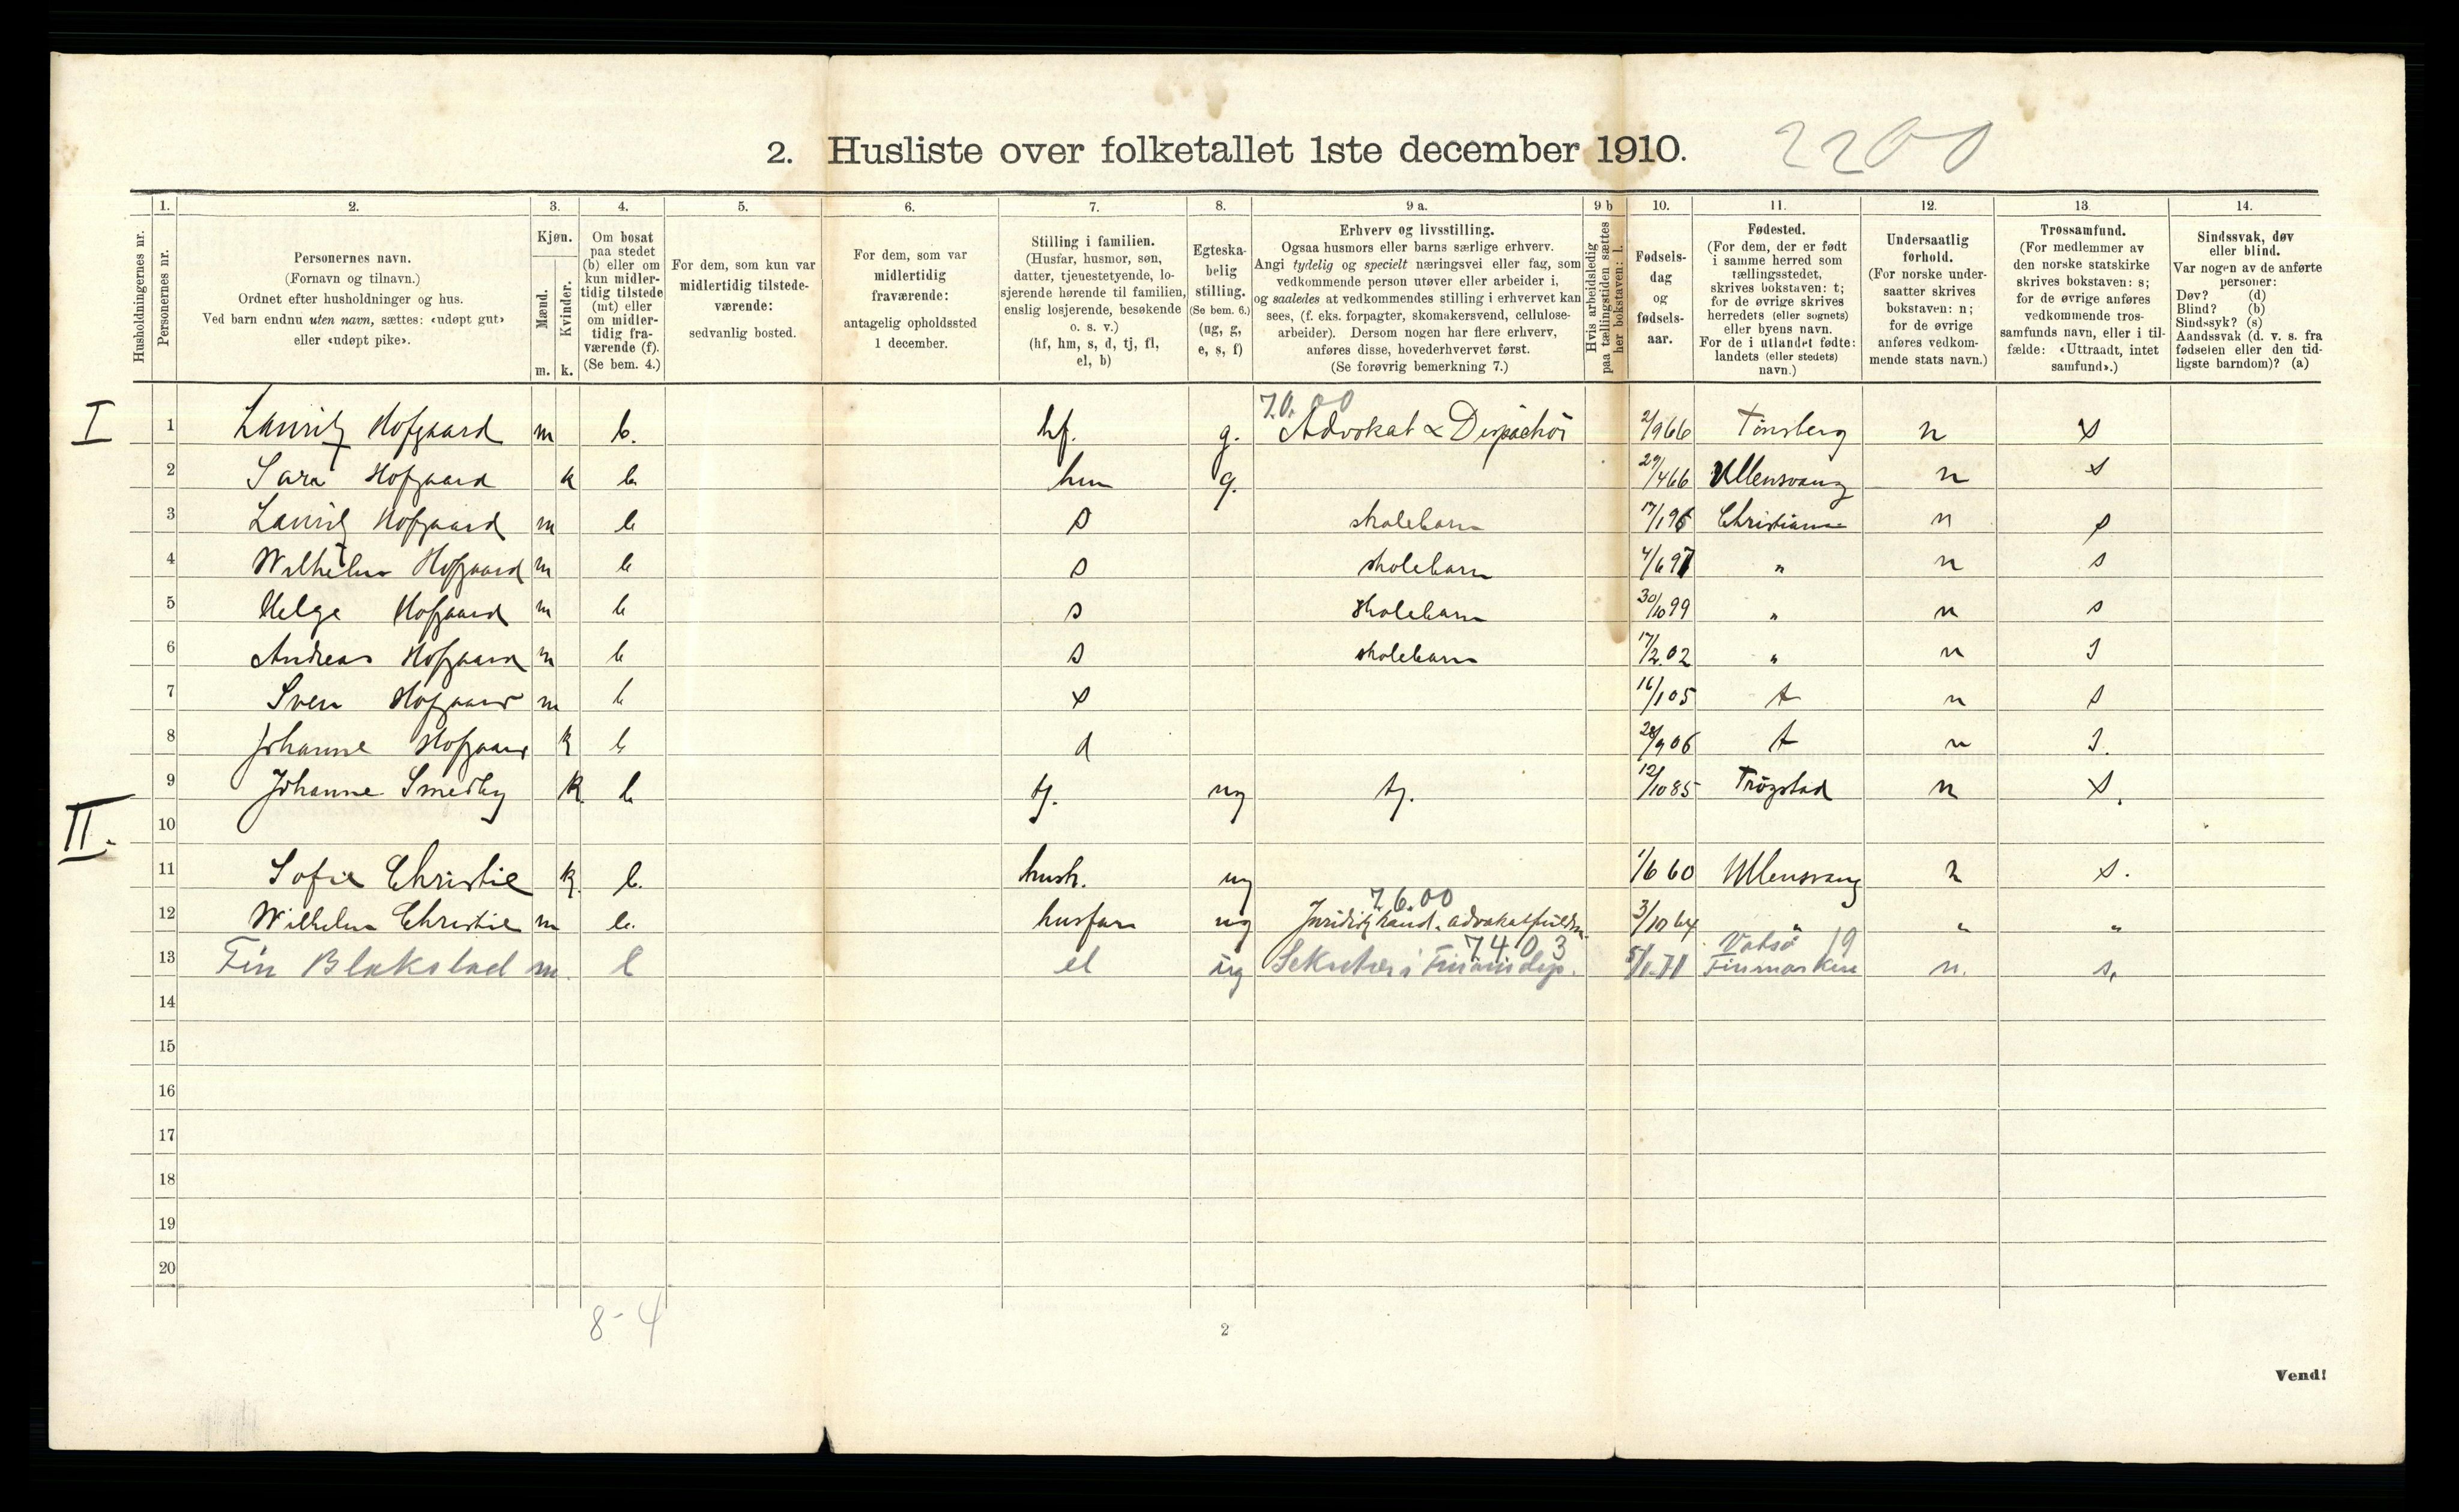 2. Husliste over folketallet 1ste december 1910. 2200
1. 2. 3. 4. 5. 6. 7. 8. 9 a. 9 b 10. 11. 12. 13. 14.
Husholdningernes nr.
Personernes nr.
Personernes navn.
(Fornavn og tilnavn.)
Ordnet efter husholdninger og hus.
Ved barn endnu uten navn, sættes: «udøpt gut»
eller «udøpt pike».
Kjøn.
Mænd.
Kvinder.
m. k.
Om bosat
paa stedet
(b) eller om
kun midler-
tidig tilstede
(mt) eller
om midler-
tidig fra-
værende (f).
(Se bem. 4.)
For dem, som kun var
midlertidig tilstede-
værende:
sedvanlig bosted.
For dem, som var
midlertidig
fraværende:
antagelig opholdssted
1 december.
Stilling i familien.
(Husfar, husmor, søn,
datter, tjenestetyende, lo-
sjerende hørende til familien,
enslig losjerende, besøkende
o. s. v.)
(hf, hm, s, d, tj, fl,
el, b)
Egteska-
belig
stilling.
(Se bem. 6.)
(ug, g,
e, s, f)
Erhverv og livsstilling.
Ogsaa husmors eller barns særlige erhverv.
Angi tydelig og specielt næringsvei eller fag, som
vedkommende person utøver eller arbeider i,
og saaledes at vedkommendes stilling i erhvervet kan
sees, (f. eks. forpagter, skomakersvend, cellulose-
arbeider). Dersom nogen har flere erhverv,
anføres disse, hovederhvervet først.
(Se forøvrig bemerkning 7.)
Hvis arbeidsledig
paa tællingstiden sættes
her bokstaven: l.
Fødsels-
dag
og
fødsels-
aar.
Fødested.
(For dem, der er født
i samme herred som
tællingsstedet,
skrives bokstaven: t;
for de øvrige skrives
herredets (eller sognets)
eller byens navn.
For de i utlandet fødte:
landets (eller stedets)
navn.)
Undersaatlig
forhold.
(For norske under-
saatter skrives
bokstaven: n;
for de øvrige
anføres vedkom-
mende stats navn.)
Trossamfund.
(For medlemmer av
den norske statskirke
skrives bokstaven: s;
for de øvrige anføres
vedkommende tros-
samfunds navn, eller i til-
fælde: «Uttraadt, intet
samfund».)
Sindssvak, døv
eller blind.
Var nogen av de anførte
personer:
Døv? (d)
Blind? (b)
Sindssyk? (s)
Aandssvak (d. v. s. fra
fødselen eller den tid-
ligste barndom)? (a)
7.0.00
I 1 Lauritz Hofgaard m b. hf. g. Advokat & Dispachør 2/9 66 Tønsberg n s
2 Sara Hofgaard k b hm g. 29/4 66 Ullensvang n s
3 Lauritz Hofgaard m b s skolebarn 17/1 96 Christiania n s
4 Wilhelm Hofgaard m b s skolebarn 4/6 97 " n s
5 Helge Hofgaard m b s skolebarn 30/10 99 " n s
6 Andreas Hofgaard m b s skolebarn 17/2.02 " n s
7 Sven Hofgaard m b s 16/1 05 t n s
8 Johanne Hofgaard k b d 28/9 06 t n s.
9 Johanne Smedby k. b tj. ug tj. 12/10 85 Trøgstad n s.
II. 10
11 Sofie Christie k. b. hush. ug 1/6 60 Ullensvang n s.
7.6.00
12 Wilhelm Christie m b. husfar ug Juridisk kand. advokatfuldm. 3/10 64 " " "
7403 Vadsø 19
13 Fin Blakstad m. b el ug Sekretær i Finansdep. 5/1.71 Finmarken n. s.
14
15
16
17
18
19
20
8-4
2
Vend!